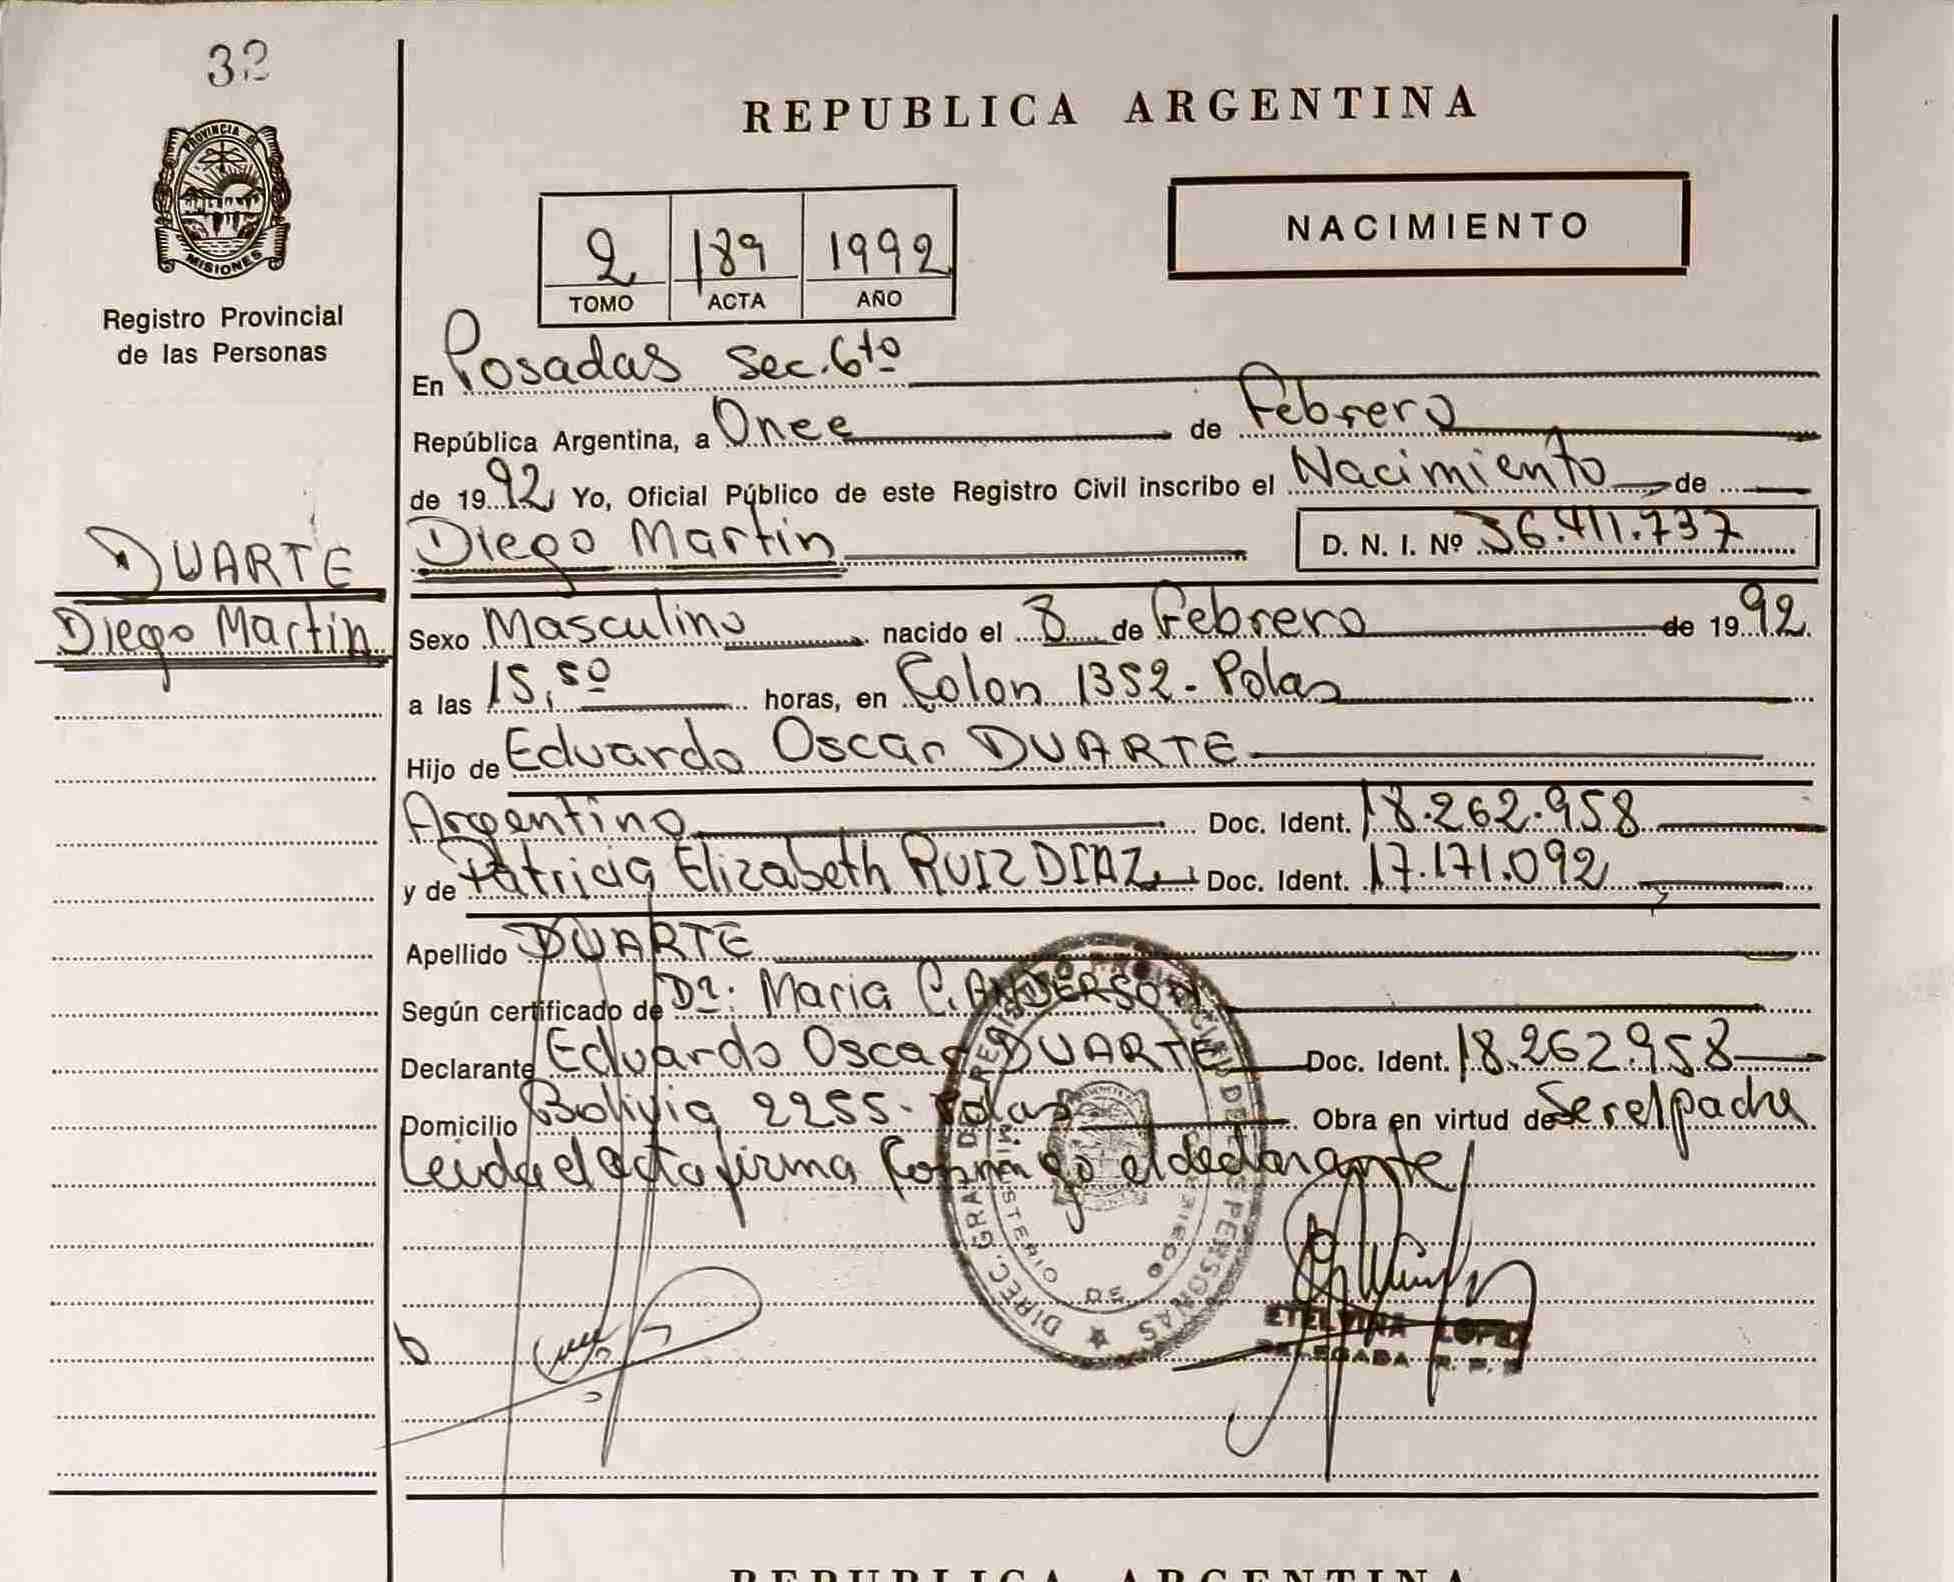 32
PROVINCIA DE
MISIONES
Registro Provincial
de las Personas
DUARTE
Diego Martin
REPUBLICA ARGENTINA
NACIMIENTO
2 189 1992
TOMO ACTA AÑO
En Posadas Sec. 6to
República Argentina, a Once de Febrero
de 1992 Yo, Oficial Público de este Registro Civil inscribo el Nacimiento de
Diego Martin D. N. I. Nº 36.411.737
Sexo Masculino nacido el 8 de Febrero de 1992
a las 15,50 horas, en Colon 1352 - Pdas
Hijo de Eduardo Oscar DUARTE
Argentino Doc. Ident. 18.262.958
y de Patricia Elizabeth RUIZ DIAZ Doc. Ident. 17.171.092
Apellido DUARTE
Según certificado de Dª: Maria C. ANDERSON
Declarante Eduardo Oscar DUARTE Doc. Ident. 18.262.958
Domicilio Bolivia 2255 - Pdas Obra en virtud de Ser el padre
Leida el acta firma Conmigo el declarante
DIREC. GRAL DE REGISTRO PROVINCIAL DE LAS PERSONAS
MINISTERIO DE GOBIERNO
ETELVINA LOPEZ
DELEGADA R. P.
REPUBLICA ARGENTINA